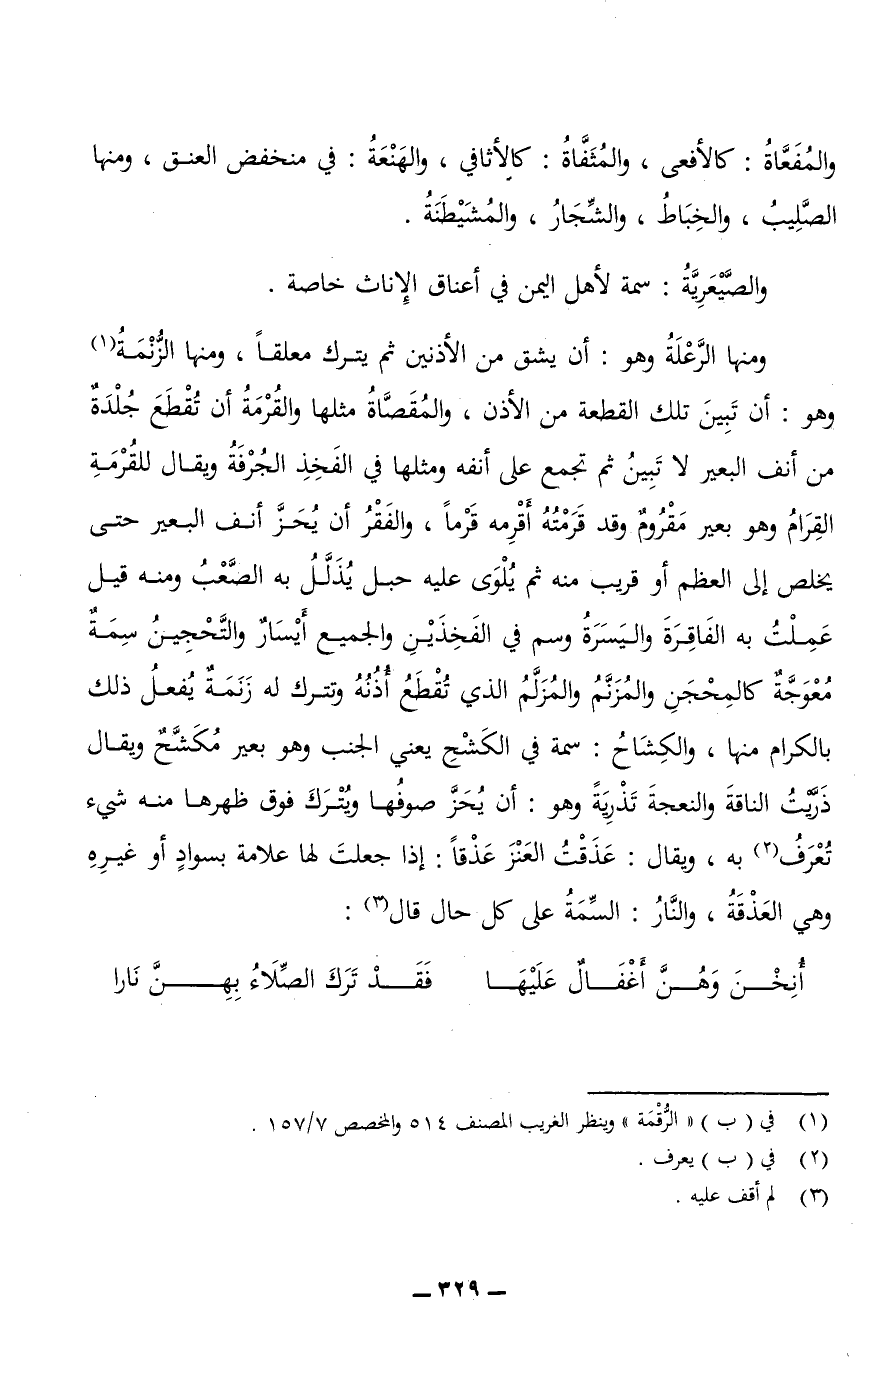 والمُفَعَّاةُ : كالأفعى ، والمُثَفَّاةُ : كالأثافي ، والهَنْعَةُ : في منخفض العنق ، ومنها
الصَّلِيبُ ، والخِبَاطُ ، والشِّجَارُ ، والمُشَيْطَنَةُ .
والصَّيْعَرِيَّةُ : سمة لأهل اليمن في أعناق الإناث خاصة .
ومنها الرَّعْلَةُ وهو : أن يشق من الأذنين ثم يترك معلقاً ، ومنها الزُّنْمَةُ(١)
وهو : أن تَبِينَ تلك القطعة من الأذن ، والمُقَصَّاةُ مثلها والقُرْمَةُ أن تُقْطَعَ جُلْدَةٌ
من أنف البعير لا تَبِينُ ثم تجمع على أنفه ومثلها في الفَخِذِ الجُرْفَةُ ويقال للقُرْمَةِ
القِرَامُ وهو بعير مَقْرُومٌ وقد قَرَمْتُهُ أَقْرِمه قَرْماً ، والفَقْرُ أن يُحَزَّ أنف البعير حتى
يخلص إلى العظم أو قريب منه ثم يُلْوَى عليه حبل يُذَلَّلُ به الصَّعْبُ ومنه قيل
عَمِلْتُ به الفَاقِرَةَ واليَسَرَةُ وسم في الفَخِذَيْنِ والجميع أَيْسَارٌ والتَّحْجِينُ سِمَةٌ
مُعْوَجَّةٌ كالمِحْجَنِ والمُزَنَّمُ والمُزَلَّمُ الذي تُقْطَعُ أُذُنُهُ وتترك له زَنَمَةٌ يُفعلُ ذلك
بالكرام منها ، والكِشَاحُ : سمة في الكَشْحِ يعني الجنب وهو بعير مُكَشَّحٌ ويقال
ذَرَّيْتُ الناقةَ والنعجةَ تَذْرِيَةً وهو : أن يُحَزَّ صوفُها ويُتْرَكَ فوق ظهرها منه شيء
تُعْرَفُ(٢) به ، ويقال : عَذَقْتُ العَنْزَ عَذْقاً : إذا جعلتَ لها علامة بسوادٍ أو غيرِهِ
وهي العَذْقَةُ ، والنَّارُ : السِّمَةُ على كل حال قال(٣) :
أُنِخْنَ وَهُنَّ أَغْفَالٌ عَلَيْهَا فَقَدْ تَرَكَ الصِّلَاءُ بِهِنَّ نَارا
(١) في ( ب ) « الرُّقْمَة » وينظر الغريب المصنف ٥١٤ والمخصص ١٥٧/٧ .
(٢) في ( ب ) يعرف .
(٣) لم أقف عليه .
ــ ٣٢٩ ــ